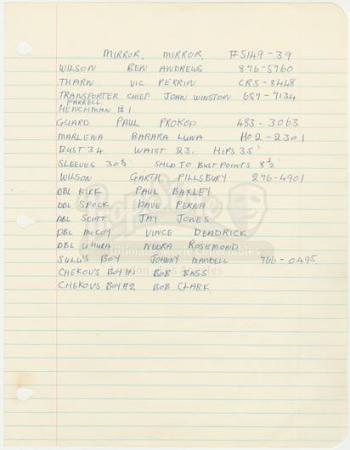 MIRROR, MIRROR, #5149-39
WILSON BEN ANDREWS 876-5760
THARN VIC PERRIN CR5-8448
TRANSPORTER CHIEF JOHN WINSTON 657-7134
FARRELL
HENCHMAN #1
GUARD PAUL PROKOP 483-3063
MARLENA BARBRA LUNA HO2-2301
BUST 34 WAIST 23. HIPS 35
SLEEVES 30½ SHLD TO BUST POINTS 8½
WILSON GARTH PILLSBURY 276-4901
DBL KIRK PAUL BAXLEY
DBL SPOCK DAVE PERNA
DBL SCOTT JAY JONES
DBL MCCOY VINCE DEADRICK
DBL UHURA NEDRA ROSEMOND
SULU'S BOY JOHNNY MANDELL 766-0495
CHEKOV'S BOY#1 BOB BASS
CHEKOV'S BOY#2 BOB CLARK